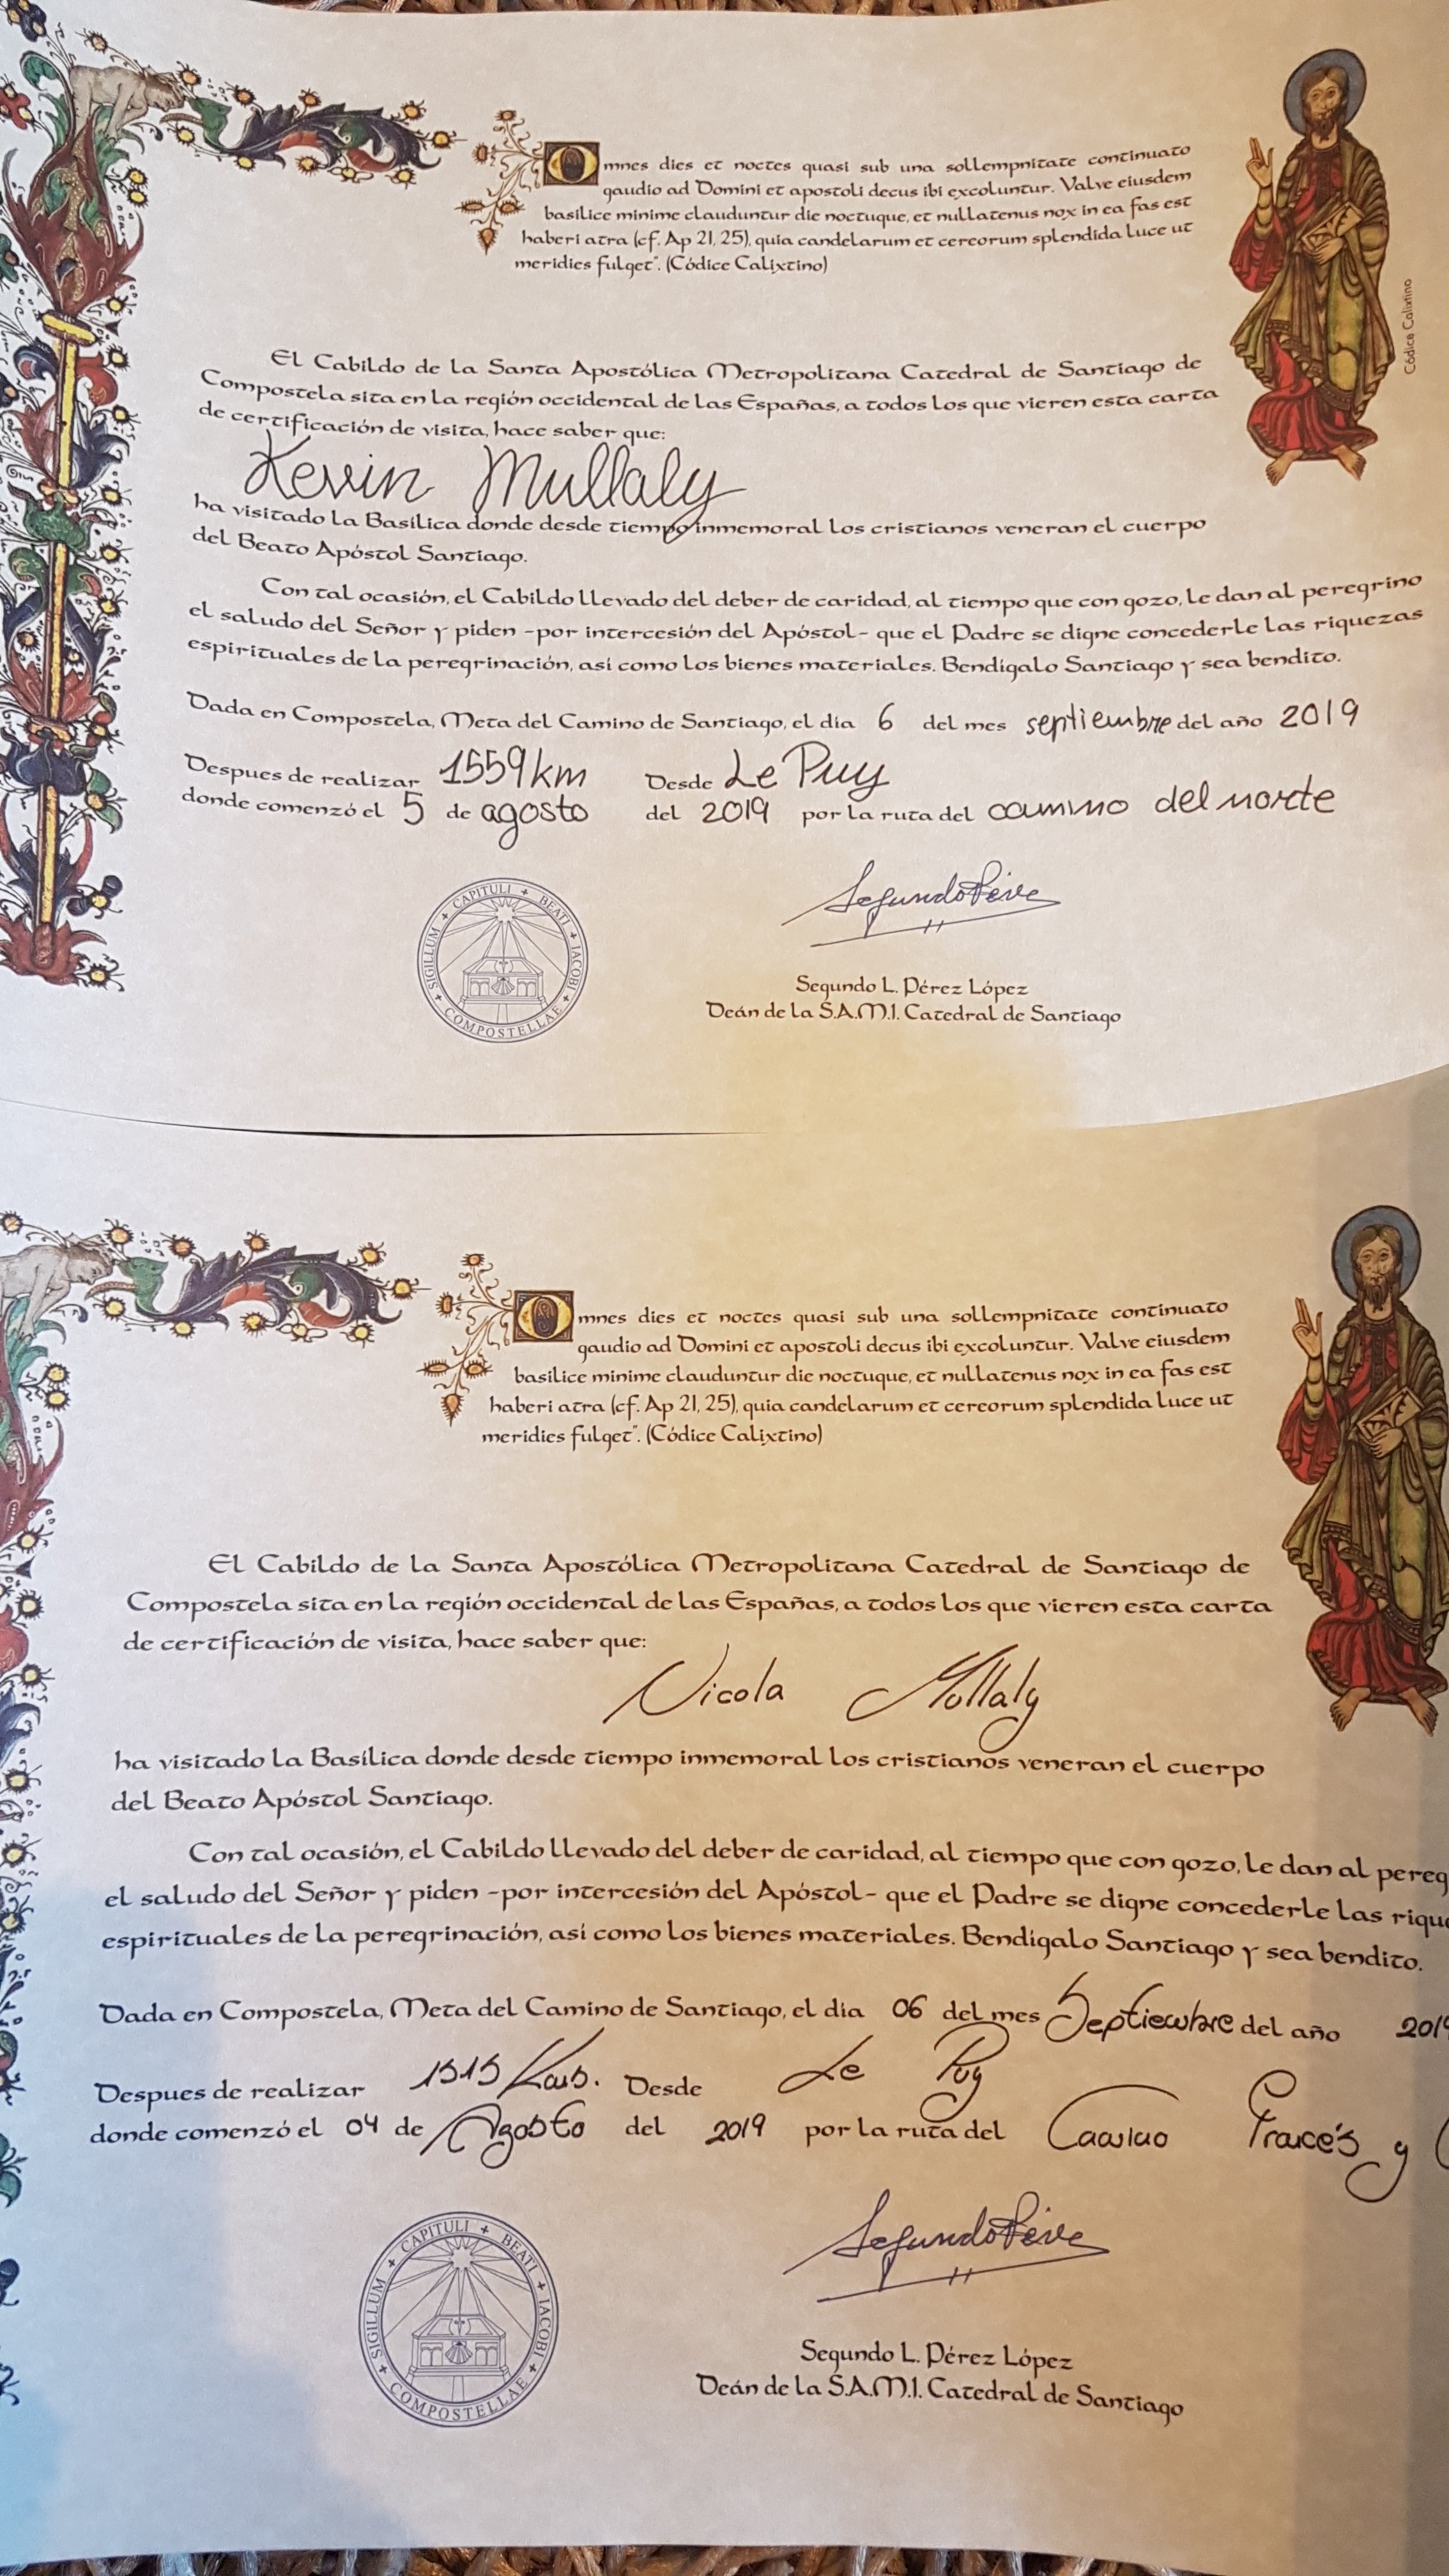 Omnes dies et noctes quasi sub una sollempnitate continuato
gaudio ad Domini et apostoli decus ibi excoluntur. Valve eiusdem
basilice minime clauduntur die noctuque, et nullatenus nox in ea fas est
haberi atra (cf. Ap 21, 25), quia candelarum et cereorum splendida luce ut
meridies fulget". (Códice Calixtino)
Códice Calixtino
El Cabildo de la Santa Apostólica Metropolitana Catedral de Santiago de
Compostela sita en la región occidental de las Españas, a todos los que vieren esta carta
de certificación de visita, hace saber que:
Kevin Mullaly
ha visitado la Basílica donde desde tiempo inmemoral los cristianos veneran el cuerpo
del Beato Apóstol Santiago.
Con tal ocasión, el Cabildo llevado del deber de caridad, al tiempo que con gozo, le dan al peregrino
el saludo del Señor y piden -por intercesión del Apóstol- que el Padre se digne concederle las riquezas
espirituales de la peregrinación, así como los bienes materiales. Bendígalo Santiago y sea bendito.
Dada en Compostela, Meta del Camino de Santiago, el día 6 del mes septiembre del año 2019
Despues de realizar 1559km Desde Le Puy
donde comenzó el 5 de agosto del 2019 por la ruta del camino del norte
SIGILLUM + CAPITULI + BEATI + IACOBI + COMPOSTELLAE +
Segundo L. Pérez López
Deán de la S.A.M.I. Catedral de Santiago
Omnes dies et noctes quasi sub una sollempnitate continuato
gaudio ad Domini et apostoli decus ibi excoluntur. Valve eiusdem
basilice minime clauduntur die noctuque, et nullatenus nox in ea fas est
haberi atra (cf. Ap 21, 25), quia candelarum et cereorum splendida luce ut
meridies fulget". (Códice Calixtino)
El Cabildo de la Santa Apostólica Metropolitana Catedral de Santiago de
Compostela sita en la región occidental de las Españas, a todos los que vieren esta carta
de certificación de visita, hace saber que:
Nicola Mullaly
ha visitado la Basílica donde desde tiempo inmemoral los cristianos veneran el cuerpo
del Beato Apóstol Santiago.
Con tal ocasión, el Cabildo llevado del deber de caridad, al tiempo que con gozo, le dan al pereg
el saludo del Señor y piden -por intercesión del Apóstol- que el Padre se digne concederle las rique
espirituales de la peregrinación, así como los bienes materiales. Bendígalo Santiago y sea bendito.
Dada en Compostela, Meta del Camino de Santiago, el día 06 del mes Septiembre del año 2019
Despues de realizar 1515 Kms. Desde Le Puy
donde comenzó el 04 de Agosto del 2019 por la ruta del Camino Francés y
SIGILLUM + CAPITULI + BEATI + IACOBI + COMPOSTELLAE +
Segundo L. Pérez López
Deán de la S.A.M.I. Catedral de Santiago